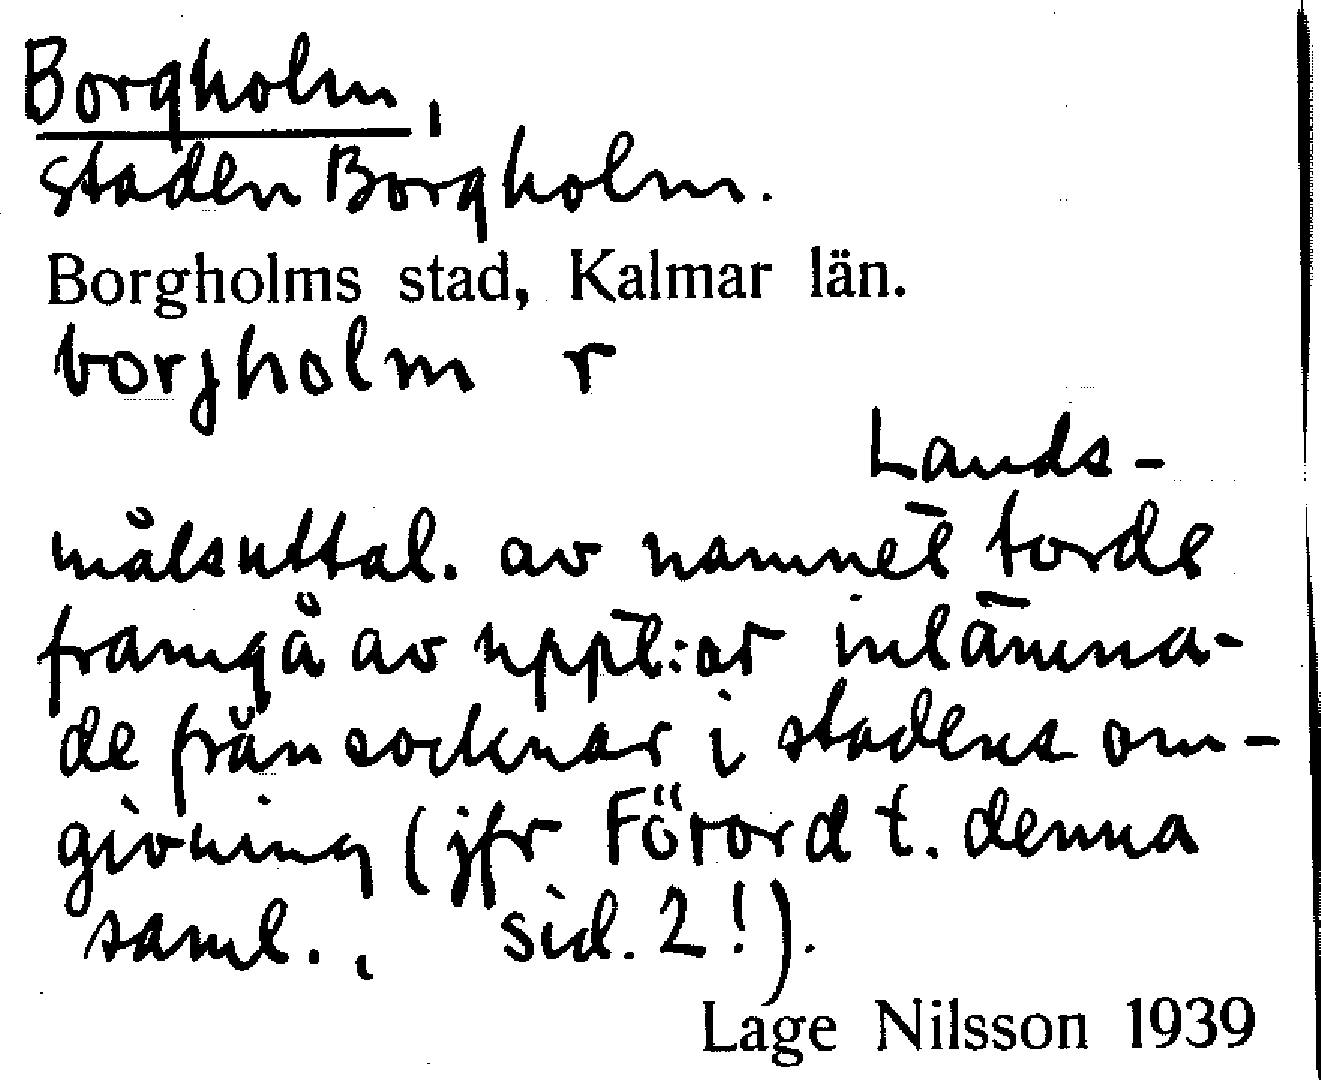 Borgholm,
staden Borgholm.
Borgholms stad, Kalmar län.
borjholm r
Lands-
målsuttal. av namnet torde
framgå av uppt:ar inlämna-
de från socknar i stadens om-
givning (jfr Förord t. denna
saml., sid. 2!).
Lage Nilsson 1939